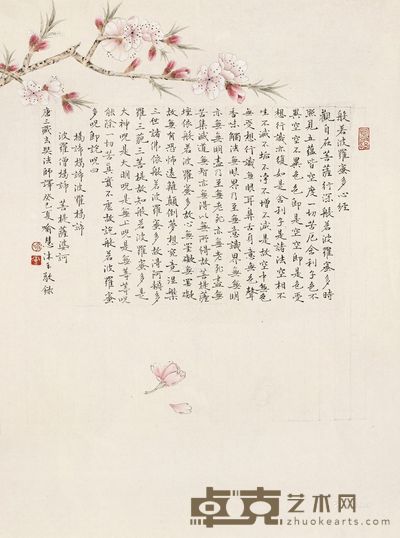 般若波羅蜜多心經
觀自在菩薩行深般若波羅蜜多時
照見五蘊皆空度一切苦厄舍利子色不
異空空不異色色即是空空即是色受
想行識亦復如是舍利子是諸法空相不
生不滅不垢不淨不增不減是故空中無色
無受想行識無眼耳鼻舌身意無色聲
香味觸法無眼界乃至無意識界無無明
亦無無明盡乃至無老死亦無老死盡無
苦集滅道無智亦無得以無所得故菩提薩
埵依般若波羅蜜多故心無罣礙無罣礙
故無有恐怖遠離顛倒夢想究竟涅槃
三世諸佛依般若波羅蜜多故得阿耨多
羅三藐三菩提故知般若波羅蜜多是
大神咒是大明咒是無上咒是無等等咒
能除一切苦真實不虛故說般若波羅蜜
多咒即說咒曰
揭諦揭諦 波羅揭諦
波羅僧揭諦 菩提薩婆訶
唐三藏玄奘法師譯 癸巳夏喻慧沐手敬錄
卓克艺术网
zhuokearts.com